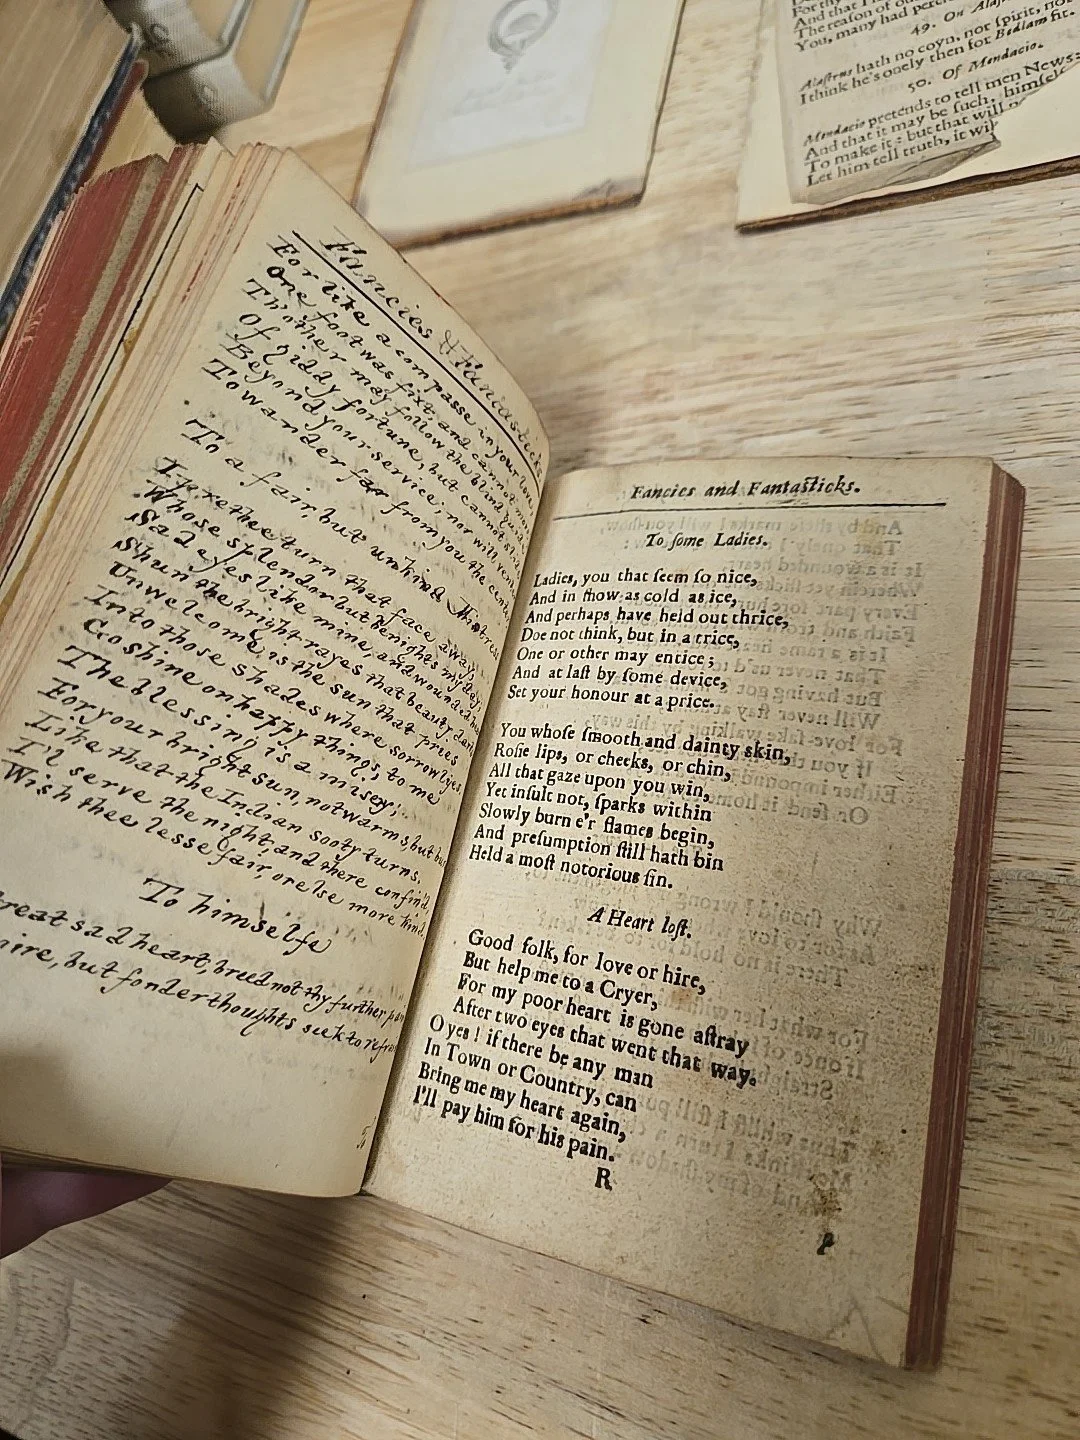 And that I
The reason of our
You, many had perc
49. On Alas
Alastrus hath no coyn, not spirit, nor
I think he's onely then for Bedlam fit.
50. Of Mendacio.
Mendacio pretends to tell men News:
And that it may be such, himself
To make it: but that will n
Let him tell truth, it wil
Fancies & Fantasticks
For like a compasse in your love,
One foot was fixt, and cannot move
Th'other may follow the blind
Of giddy fortune, but cannot slide
Beyond your service, nor will
To wander far from you the center
To a fair, but unkind Mistress
I prethee turn that face away,
Whose splendor but benights my day,
Sad eyes like mine, and wounded
Shun the bright rayes that beauty darts
Unwelcome is the sun that pries
Into those shades where sorrow lyes,
Go shine on happy things, to me
The blessing is a misery;
For your bright sun, not warms, but
Like that the Indian sooty turns.
I'l serve the night, and there confin'd
Wish thee lesse fair or else more kind
To himselfe
reat sad heart, breed not thy further pain
ire, but fonder thoughts seek to refrain
Fancies and Fantaſticks.
To ſome Ladies.
Ladies, you that ſeem ſo nice,
And in ſhow as cold as ice,
And perhaps have held out thrice,
Doe not think, but in a trice,
One or other may entice;
And at laſt by ſome device,
Set your honour at a price.
You whoſe ſmooth and dainty skin,
Roſie lips, or cheeks, or chin,
All that gaze upon you win,
Yet inſult not, ſparks within
Slowly burn e'r flames begin,
And preſumption ſtill hath bin
Held a moſt notorious ſin.
A Heart loſt.
Good folk, for love or hire,
But help me to a Cryer,
For my poor heart is gone aſtray
After two eyes that went that way.
O yes! if there be any man
In Town or Country, can
Bring me my heart again,
I'll pay him for his pain.
R